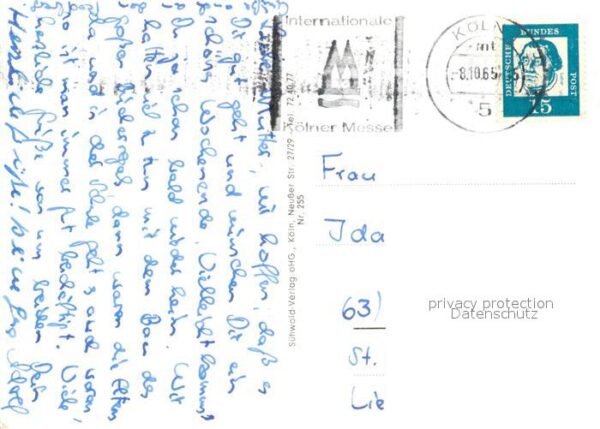 Liebe Mutter, wir hoffen, daß es
Dir gut geht und wünschen Dir ein
schönes Wochenende. Vielleicht kommst
Du ja schon bald wieder heim. Wir
hatten viel zu tun mit dem Bau des
großen dann waren die Eltern
da und in der Schule geht's auch voran
so ist man immer gut beschäftigt. Viele
herzliche Grüße von uns beiden Dein
Herzliche Grüße! Deine
Internationale
Kölner Messe
KÖLN
8.10.65
5
DEUTSCHE BUNDESPOST
15
Sühwold-Verlag oHG., Köln, Neußer Str. 27/29 · Tel. 72 40 77
Nr. 255
Frau
Ida
63)
St.
privacy protection
Datenschutz